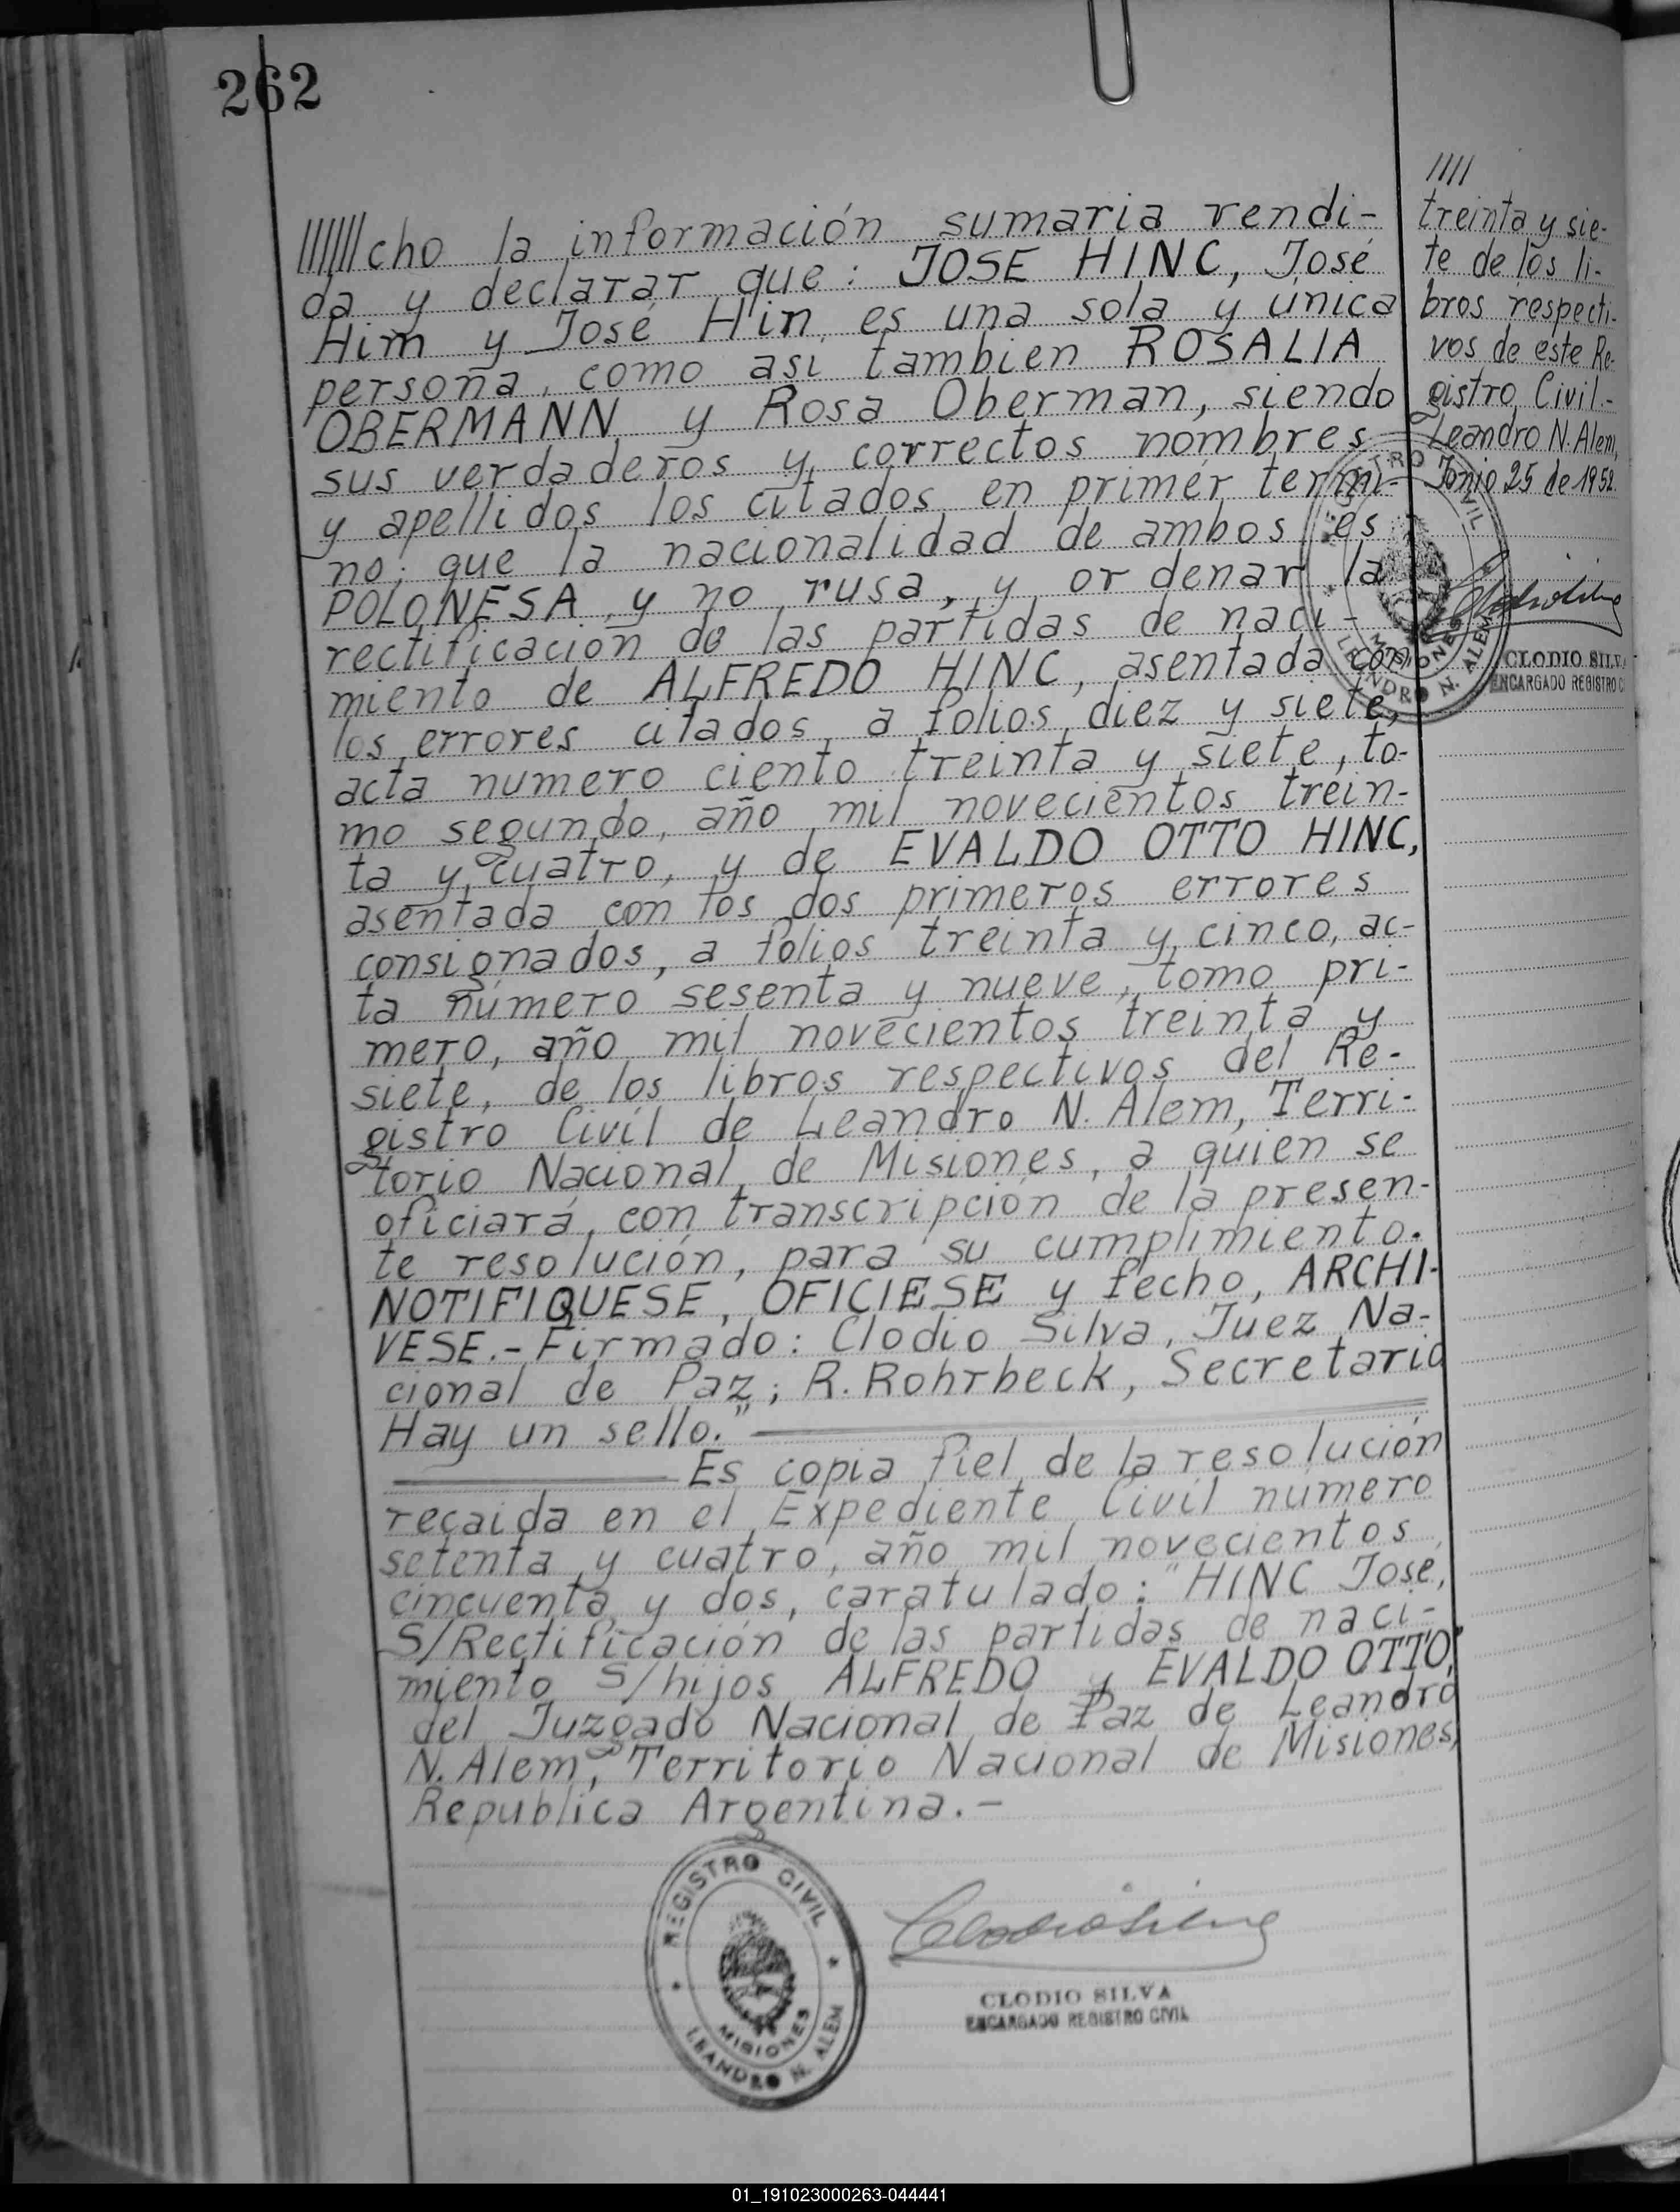 262
//////cho la información sumaria rendi-
da y declarar que: JOSE HINC, José
Him y José Hin, es una sola y única
persona, como asi tambien ROSALIA
OBERMANN y Rosa Oberman, siendo
sus verdaderos y correctos nombres
y apellidos los citados en primer térmi-
no; que la nacionalidad de ambos es
POLONESA y no rusa, y ordenar la
rectificación de las partidas de naci-
miento de ALFREDO HINC, asentada con
los errores citados, a folios diez y siete,
acta numero ciento treinta y siete, to-
mo segundo, año mil novecientos trein-
ta y cuatro, y de EVALDO OTTO HINC,
asentada con los dos primeros errores
consignados, a folios treinta y cinco, ac-
ta número sesenta y nueve, tomo pri-
mero, año mil novecientos treinta y
siete, de los libros respectivos del Re-
gistro Civil de Leandro N. Alem, Terri-
torio Nacional de Misiones, a quien se
oficiará, con transcripción de la presen-
te resolución, para su cumplimiento.
NOTIFIQUESE, OFICIESE y fecho, ARCHI-
VESE.- Firmado: Clodio Silva, Juez Na-
cional de Paz; R. Rohrbeck, Secretario
Hay un sello."
Es copia fiel de la resolución
recaida en el Expediente Civil número
setenta y cuatro, año mil novecientos
cincuenta y dos, caratulado: "HINC José,
S/Rectificación de las partidas de naci-
miento S/hijos ALFREDO y EVALDO OTTO,"
del Juzgado Nacional de Paz de Leandro
N. Alem, Territorio Nacional de Misiones,
Republica Argentina.-
REGISTRO CIVIL
MISIONES
LEANDRO N. ALEM
Clodio Silva
CLODIO SILVA
ENCARGADO REGISTRO CIVIL
////
treinta y sie-
te de los li-
bros respecti-
vos de este Re-
gistro Civil.-
Leandro N. Alem,
Junio 25 de 1952.
REGISTRO CIVIL
MISIONES
LEANDRO N. ALEM
Clodio Silva
CLODIO SILVA
ENCARGADO REGISTRO C
01_191023000263-044441